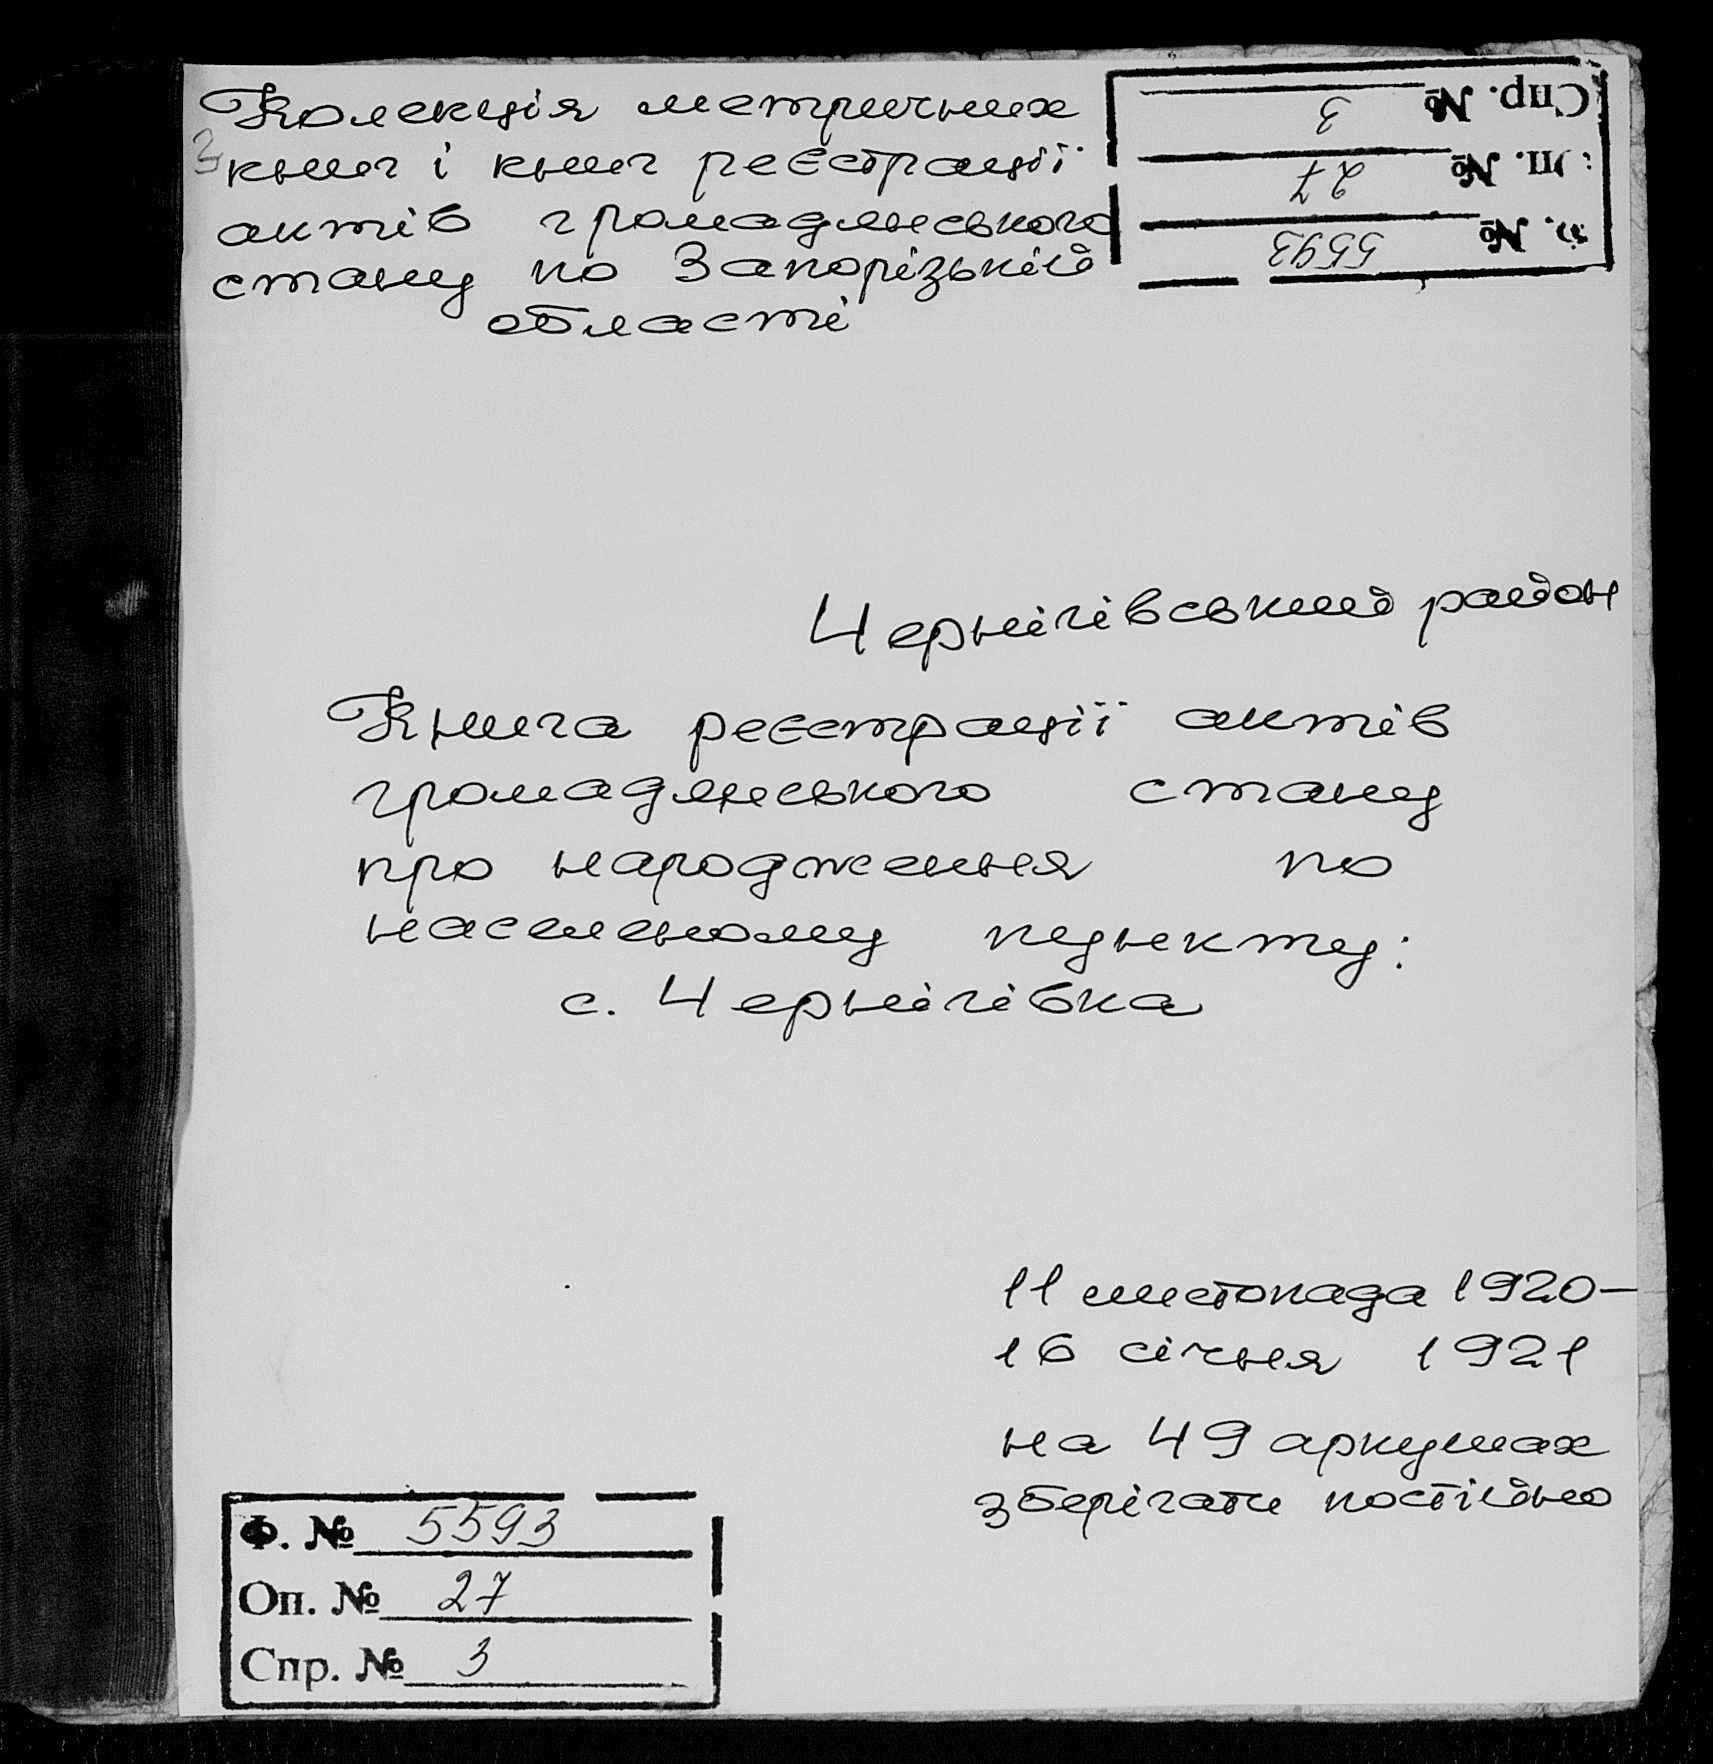 Колекція метричних
книг і книг реєстрації
актів громадянського
стану по Запорізькій
області
Спр. № 3
Оп. № 27
Ф. № 5593
Чернігівський район
Книга реєстрації актів
громадянського стану
про народження по
населеному пункту:
с. Чернігівка
11 листопада 1920–
16 січня 1921
на 49 аркушах
зберігати постійно
Ф. № 5593
Оп. № 27
Спр. № 3